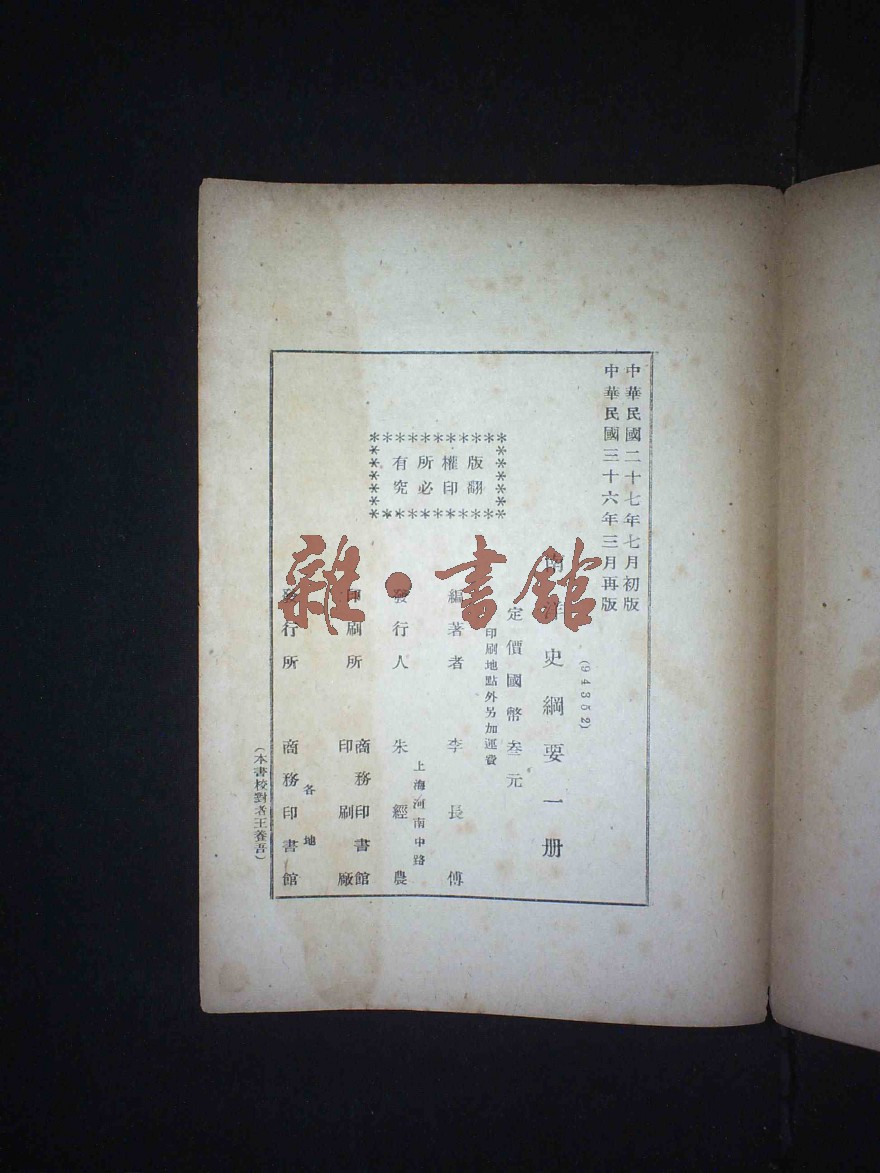 中華民國二十七年七月初版
中華民國三十六年三月再版
(94352)
南洋史綱要一册
定價國幣叁元
印刷地點外另加運費
版權所有
翻印必究
編著者 李長傅
上海河南中路
發行人 朱經農
印刷所 商務印書館印刷廠
各地
發行所 商務印書館
(本書校對者王養吾)
雜·書館